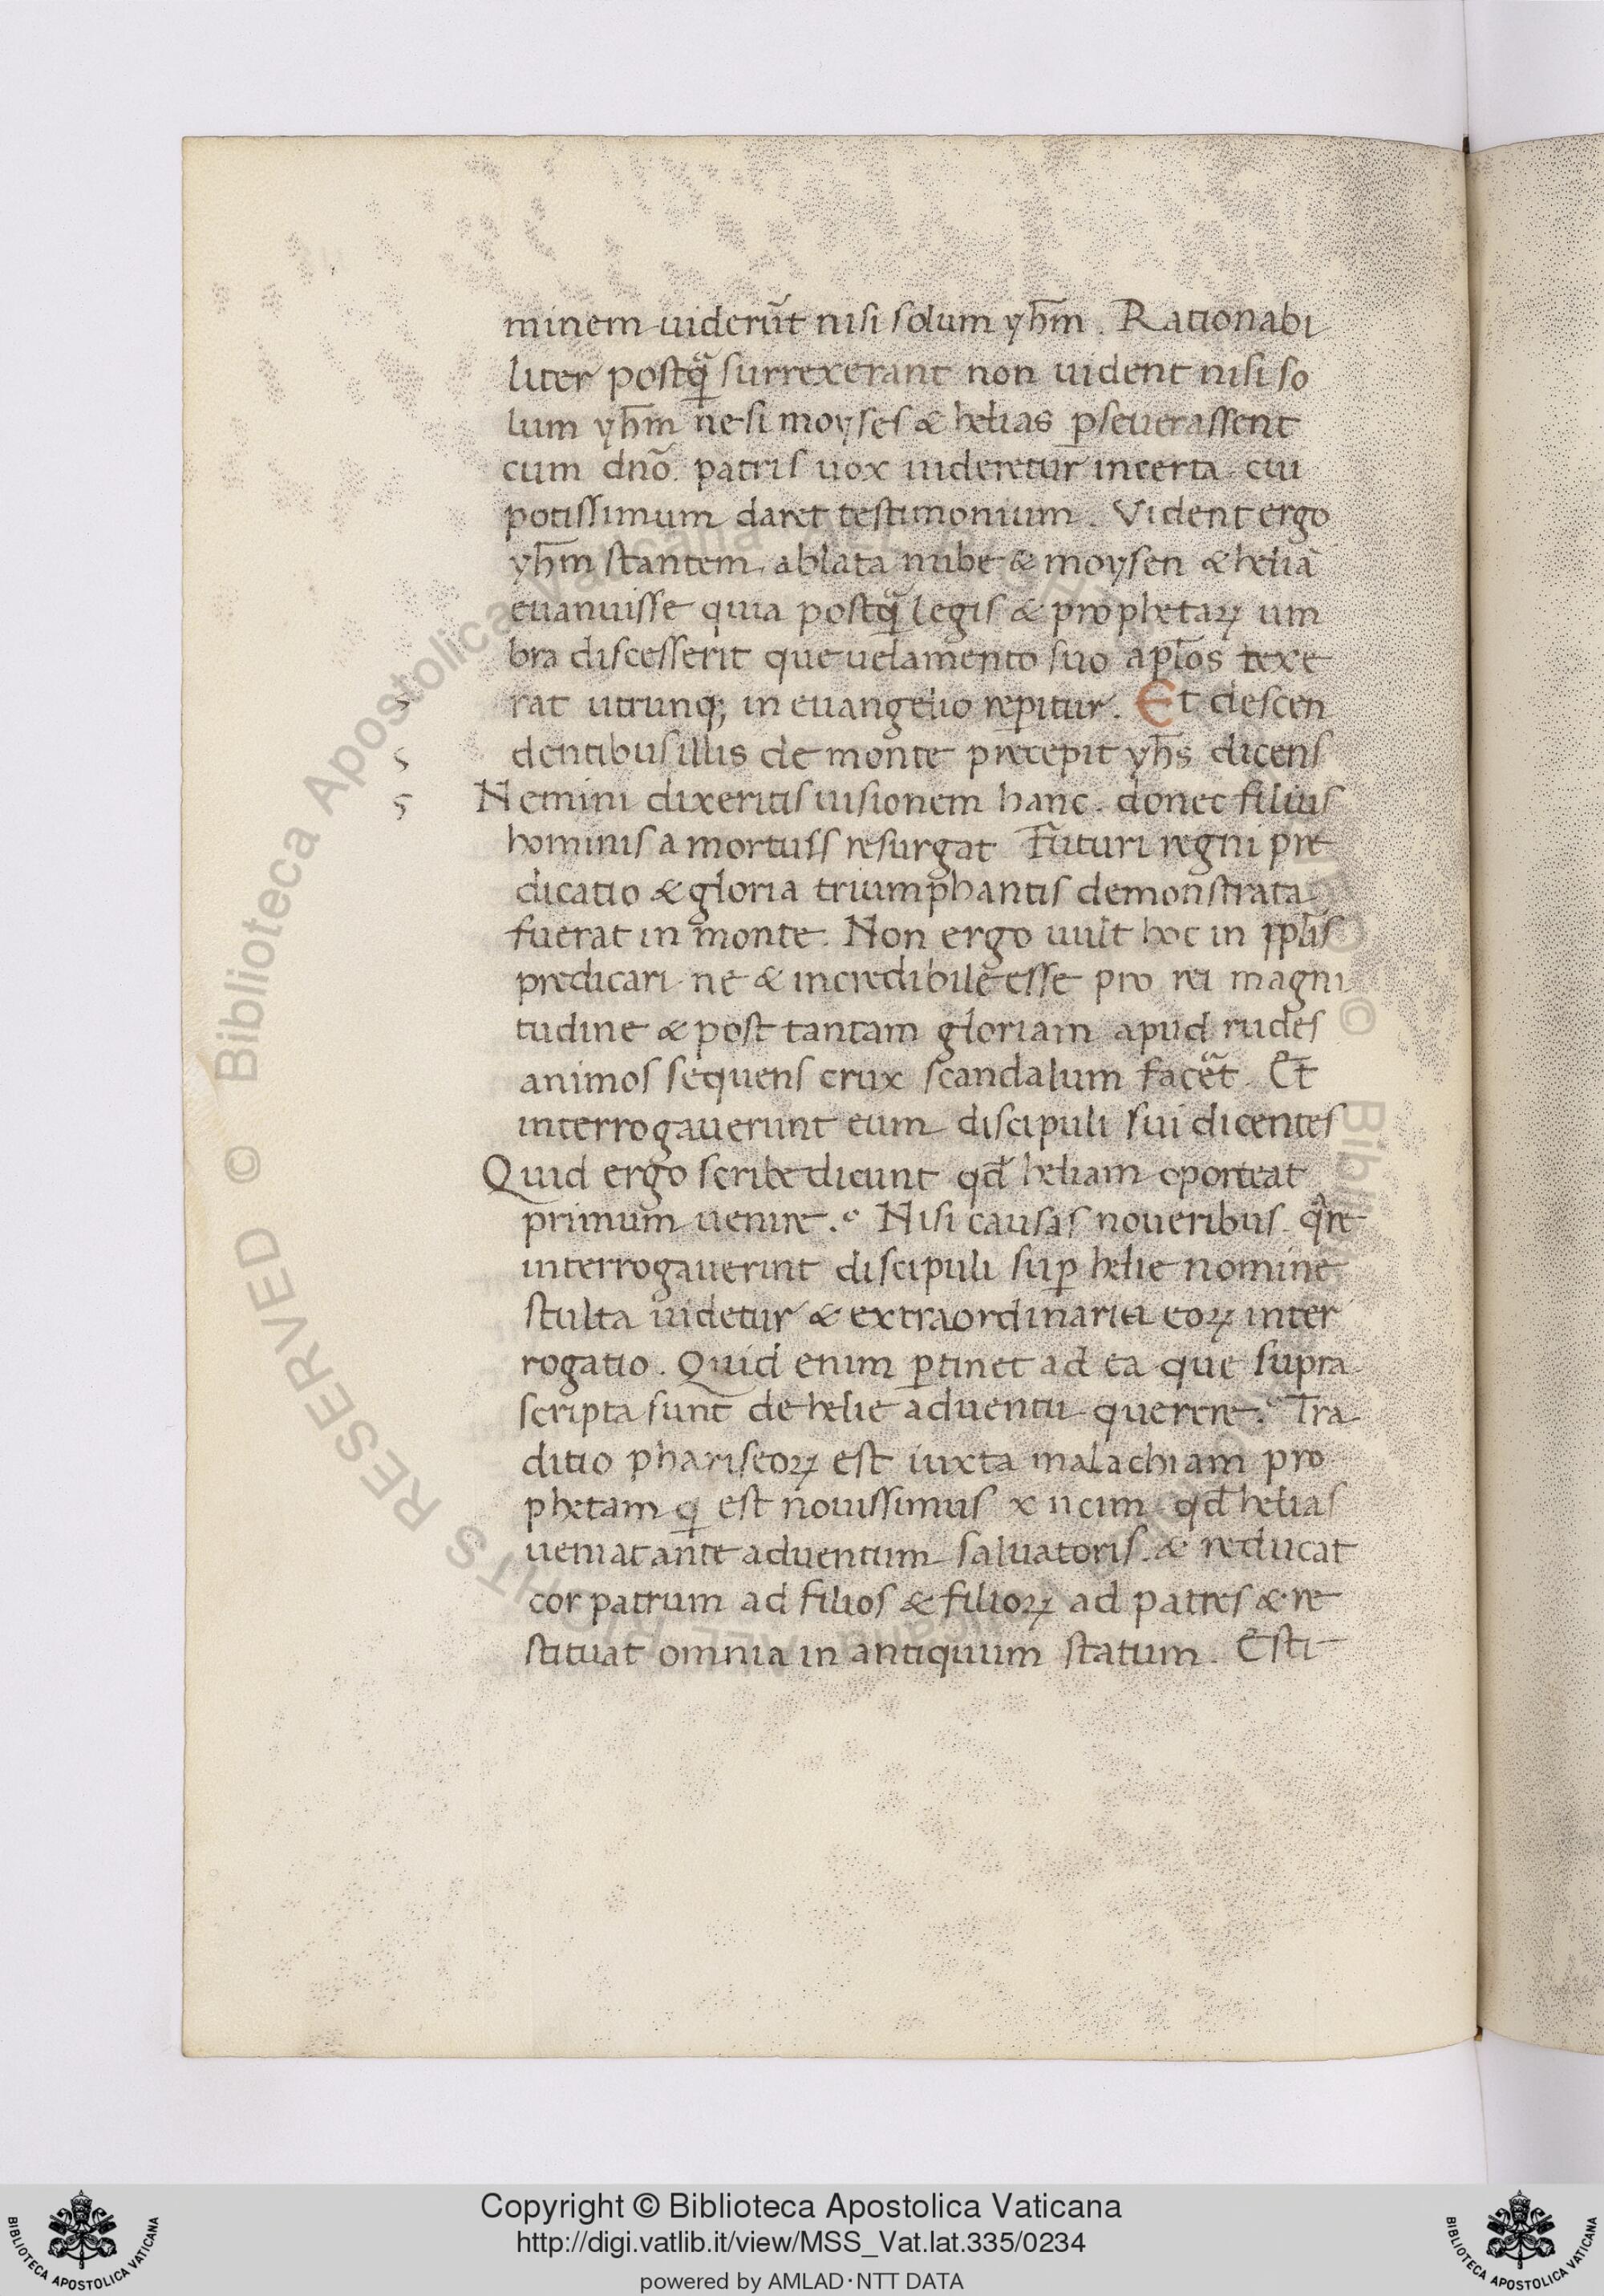 minem uiderūt nisi solum yhm̄. Rationabi
liter postq̄ surrexerant non uident nisi so
lum yhm̄ ne si moyses & helias ꝑseuerassent
cum dnō. patris uox uideretur incerta cui
potissimum daret testimonium. Vident ergo
yhm̄ stantem ablata nube & moysen & heliā
euanuisse quia postq̄ legis & prophetaꝝ um
bra discesserit que uelamento suo apl̄os texe
rat utrunq; in euangelio reꝑitur. Et descen
dentibus illis de monte precepit yhs̄ dicens
Nemini dixeritis uisionem hanc. donec filius
hominis a mortuis resurgat Futuri regni pre
dicatio & gloria triumphantis demonstrata
fuerat in monte. Non ergo uult hoc in ppl̄is
predicari ne & incredibile esse pro rei magni
tudine & post tantam gloriam apud rudes
animos sequens crux scandalum facēt. Et
interrogauerunt eum discipuli sui dicentes
Quid ergo scribe dicunt qd̄ heliam oporteat
primum uenire. Nisi causas noueribus qͥre
interrogauerint discipuli suꝑ helie nomine
stulta uidetur & extraordinaria eoꝝ inter
rogatio. Quid enim ꝑtinet ad ea que supra
scripta sunt de helie aduentu querere. Tra
ditio phariseoꝝ est iuxta malachiam pro
phetam q est nouissimus xiicim qd̄ helias
ueniat ante aduentum saluatoris. & reducat
cor patrum ad filios & filioꝝ ad patres & re
stituat omnia in antiquum statum. Esti
© Biblioteca Apostolica Vaticana ALL RIGHTS RESERVED
Copyright © Biblioteca Apostolica Vaticana
http://digi.vatlib.it/view/MSS_Vat.lat.335/0234
powered by AMLAD·NTT DATA
BIBLIOTECA APOSTOLICA VATICANA
BIBLIOTECA APOSTOLICA VATICANA